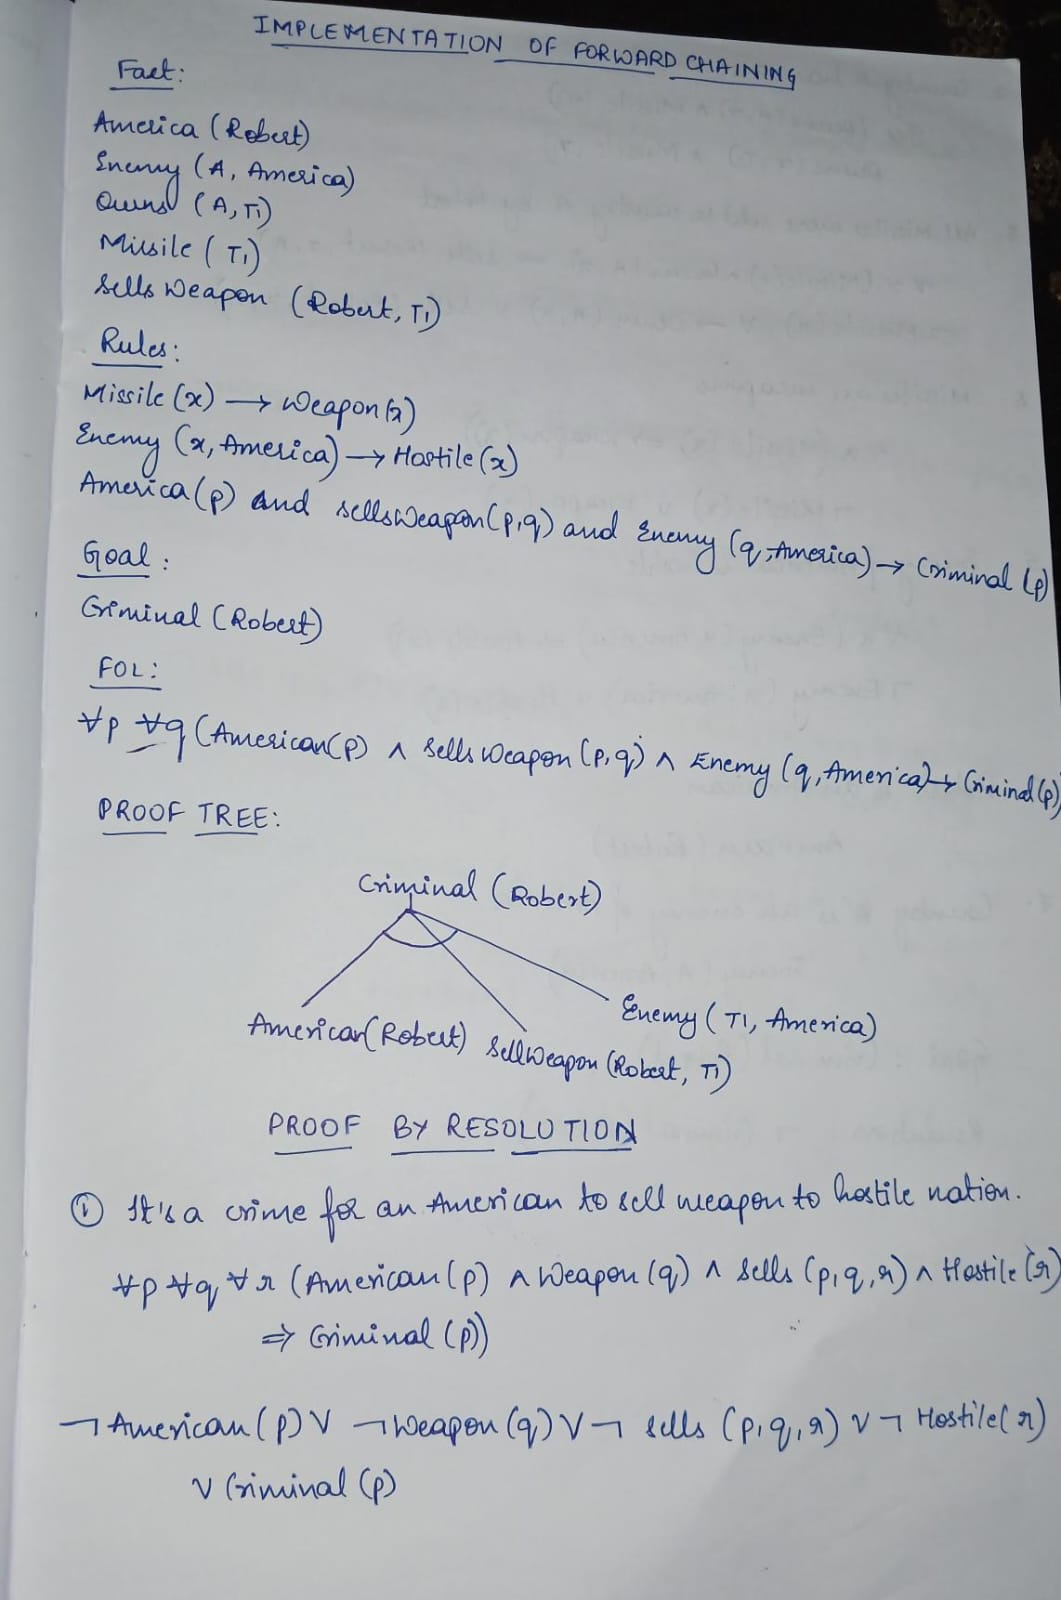 IMPLEMENTATION OF FORWARD CHAINING
Fact:
America (Robert)
Enemy (A, America)
Owns (A, T1)
Missile (T1)
Sells Weapon (Robert, T1)
Rules:
Missile (x) → Weapon(x)
Enemy (x, America) → Hostile (x)
America (p) and sellsWeapon (p,q) and Enemy (q, America) → Criminal (p)
Goal:
Criminal (Robert)
FOL:
∀p ∀q (American(p) ∧ Sells Weapon (p,q) ∧ Enemy (q, America) → Criminal (p)
PROOF TREE:
Criminal (Robert)
Enemy (T1, America)
American(Robert) SellWeapon (Robert, T1)
PROOF BY RESOLUTION
① It's a crime for an American to sell weapon to hostile nation.
∀p ∀q ∀r (American (p) ∧ Weapon (q) ∧ Sells (p,q,r) ∧ Hostile (r)
⇒ Criminal (p))
¬ American (p) ∨ ¬ Weapon (q) ∨ ¬ sells (p,q,r) ∨ ¬ Hostile(r)
∨ Criminal (p)